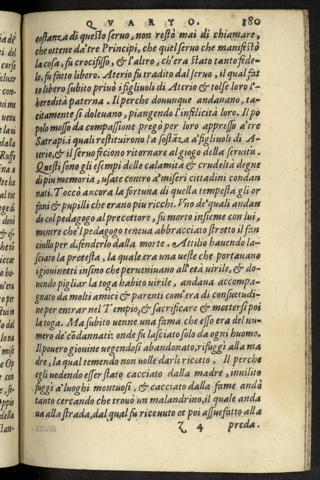 QVARTO. 180
costanza di questo seruo, non restò mai di chiamare,
che ottene da'tre Principi, che quel seruo che manifestò
la cosa, fu crocifisso, & l'altro, ch'era stato tanto fede-
le, fu fatto libero. Aterio fu tradito dal seruo, il qual fat
to libero subito priuò i figliuoli di Aterio & tolse loro l'-
heredità paterna. Il perche douunque andauano, ta-
citamente si doleuano, piangendo l'infilicità loro. Il po
polo mosso da compassione pregò per loro appresso a'tre
Satrapi. i quali restituirono la sostāza a'figliuoli di A-
terio, & il seruo fecero ritornare al giogo della seruitù.
Questi sono gli esempi delle calamità & crudeltà degne
di piu memoria, usate contro a'miseri cittadini condan
nati. Toccò ancora la fortuna di quella tempesta gli or
fani & pupilli che erano piu ricchi. Vno de'quali andan
do col pedagogo al precettore, fu morto insieme con lui,
mentre che'l pedagogo teneua abbracciato stretto il fan
ciullo per difenderlo dalla morte. Attilio hauendo la-
sciato la pretesta, la quale era una ueste che portauano
i giouinetti insino che perueniuano all'età uirile, & do-
uendo pigliar la toga habito uirile, andaua accompa-
gnato da molti amici & parenti com'era di consuetudi-
ne per entrar nel Tempio, & sacrificare & mettersi poi
la toga. Ma subito uenne una fama che esso era del nu-
mero de'cōdannati: onde fu lasciato solo da ogni huomo.
Il pouero giouine uegendosi abandonato, rifuggì alla ma
dre, la qual temendo non uolle darli ricato. Il perche
egli uedendo esser stato cacciato dalla madre, inuilito
fuggì a'luoghi montuosi, & cacciato dalla fame andò
tanto cercando che trouò un malandrino, il quale anda
ua alla strada, dal qual fu riceuuto et poi assuefatto alla
Z 4 preda.